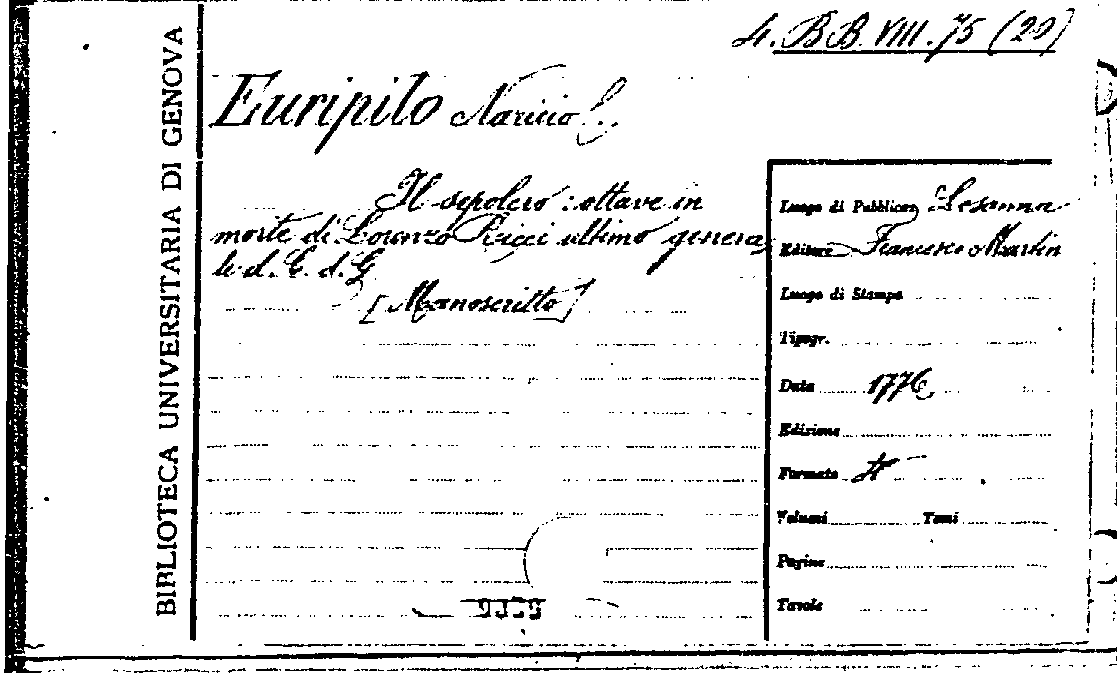 4. BB. VIII. 75 (29)
BIBLIOTECA UNIVERSITARIA DI GENOVA
Euripilo Naricio
Il sepolcro: ottave in
morte di Lorenzo Ricci ultimo genera
le d. C. d. G.
[Manoscritto]
Luogo di Pubblicaz. Losanna
Editore Francesco Martin
Luogo di Stampa
Tipogr.
Data 1776
Edizione
Formato 4°
Volumi Tomi
Pagine
Tavole